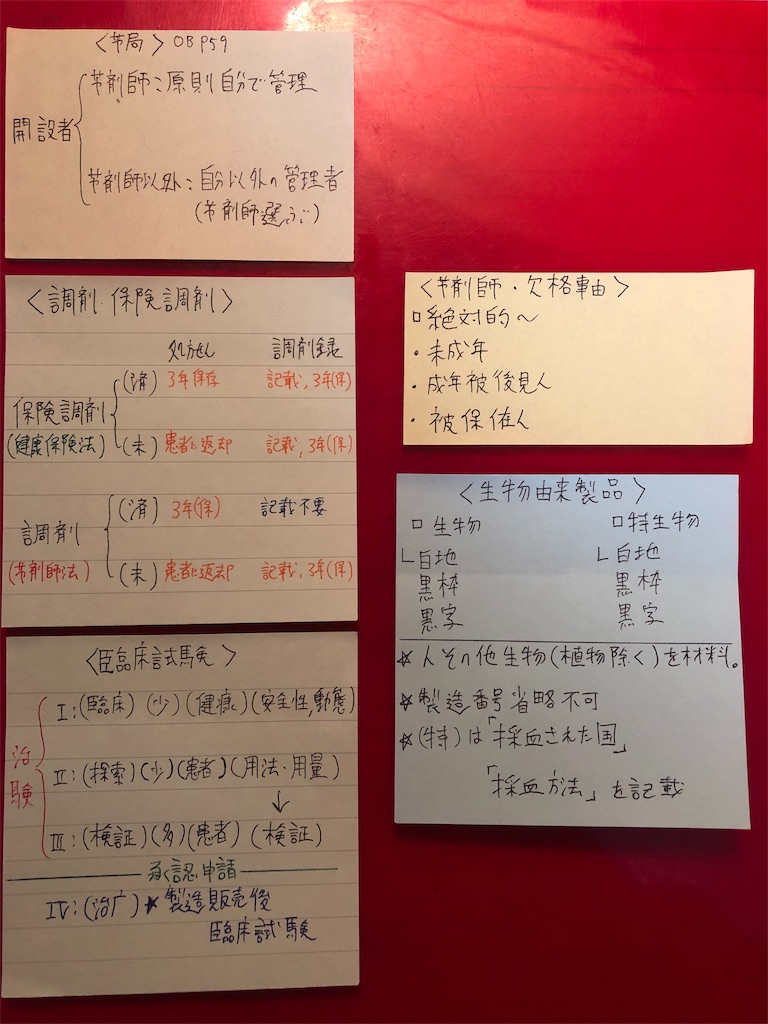 〈芇局〉 OB P59
開設者
芇剤師：原則自分で管理
芇剤師以外：自分以外の管理者
(芇剤師選ぶ)
〈調剤・保険調剤〉
処方せん 調剤録
保険調剤
(健康保険法)
(済) 3年保存 記載, 3年(保)
(未) 患者に返却 記載, 3年(保)
調剤
(芇剤師法)
(済) 3年(保) 記載不要
(未) 患者に返却 記載, 3年(保)
〈臨床試験〉
治験
I:(臨床)(少)(健康)(安全性,動態)
II:(探索)(少)(患者)(用法・用量)
↓
III:(検証)(多)(患者)(検証)
承認申請
IV:(治疒)★製造販売後
臨床試験
〈芇剤師・欠格事由〉
□絶対的～
・未成年
・成年被後見人
・被保佐人
〈生物由来製品〉
□生物 □特生物
└白地 └白地
黒枠 黒枠
黒字 黒字
☆人その他生物(植物除く)を材料。
☆製造番号省略不可
☆(特)は「採血された国」
「採血方法」を記載